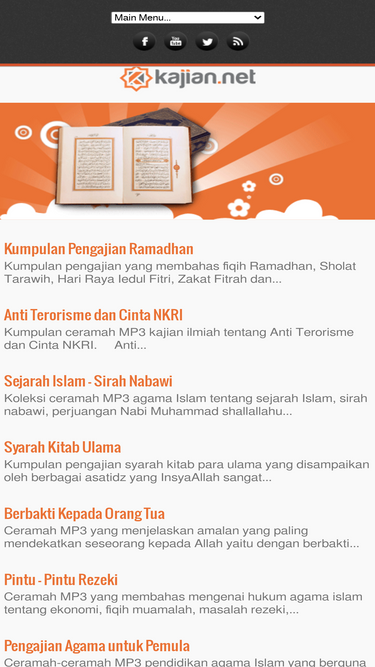 Main Menu...
You Tube
kajian.net
Kumpulan Pengajian Ramadhan
Kumpulan pengajian yang membahas fiqih Ramadhan, Sholat
Tarawih, Hari Raya Iedul Fitri, Zakat Fitrah dan...
Anti Terorisme dan Cinta NKRI
Kumpulan ceramah MP3 kajian ilmiah tentang Anti Terorisme
dan Cinta NKRI. Anti...
Sejarah Islam - Sirah Nabawi
Koleksi ceramah MP3 agama Islam tentang sejarah Islam, sirah
nabawi, perjuangan Nabi Muhammad shallallahu...
Syarah Kitab Ulama
Kumpulan pengajian syarah kitab para ulama yang disampaikan
oleh berbagai asatidz yang InsyaAllah sangat...
Berbakti Kepada Orang Tua
Ceramah MP3 yang menjelaskan amalan yang paling
mendekatkan seseorang kepada Allah yaitu dengan berbakti...
Pintu - Pintu Rezeki
Ceramah MP3 yang membahas mengenai hukum agama islam
tentang ekonomi, fiqih muamalah, masalah rezeki,...
Pengajian Agama untuk Pemula
Ceramah-ceramah MP3 pendidikan agama Islam yang berguna